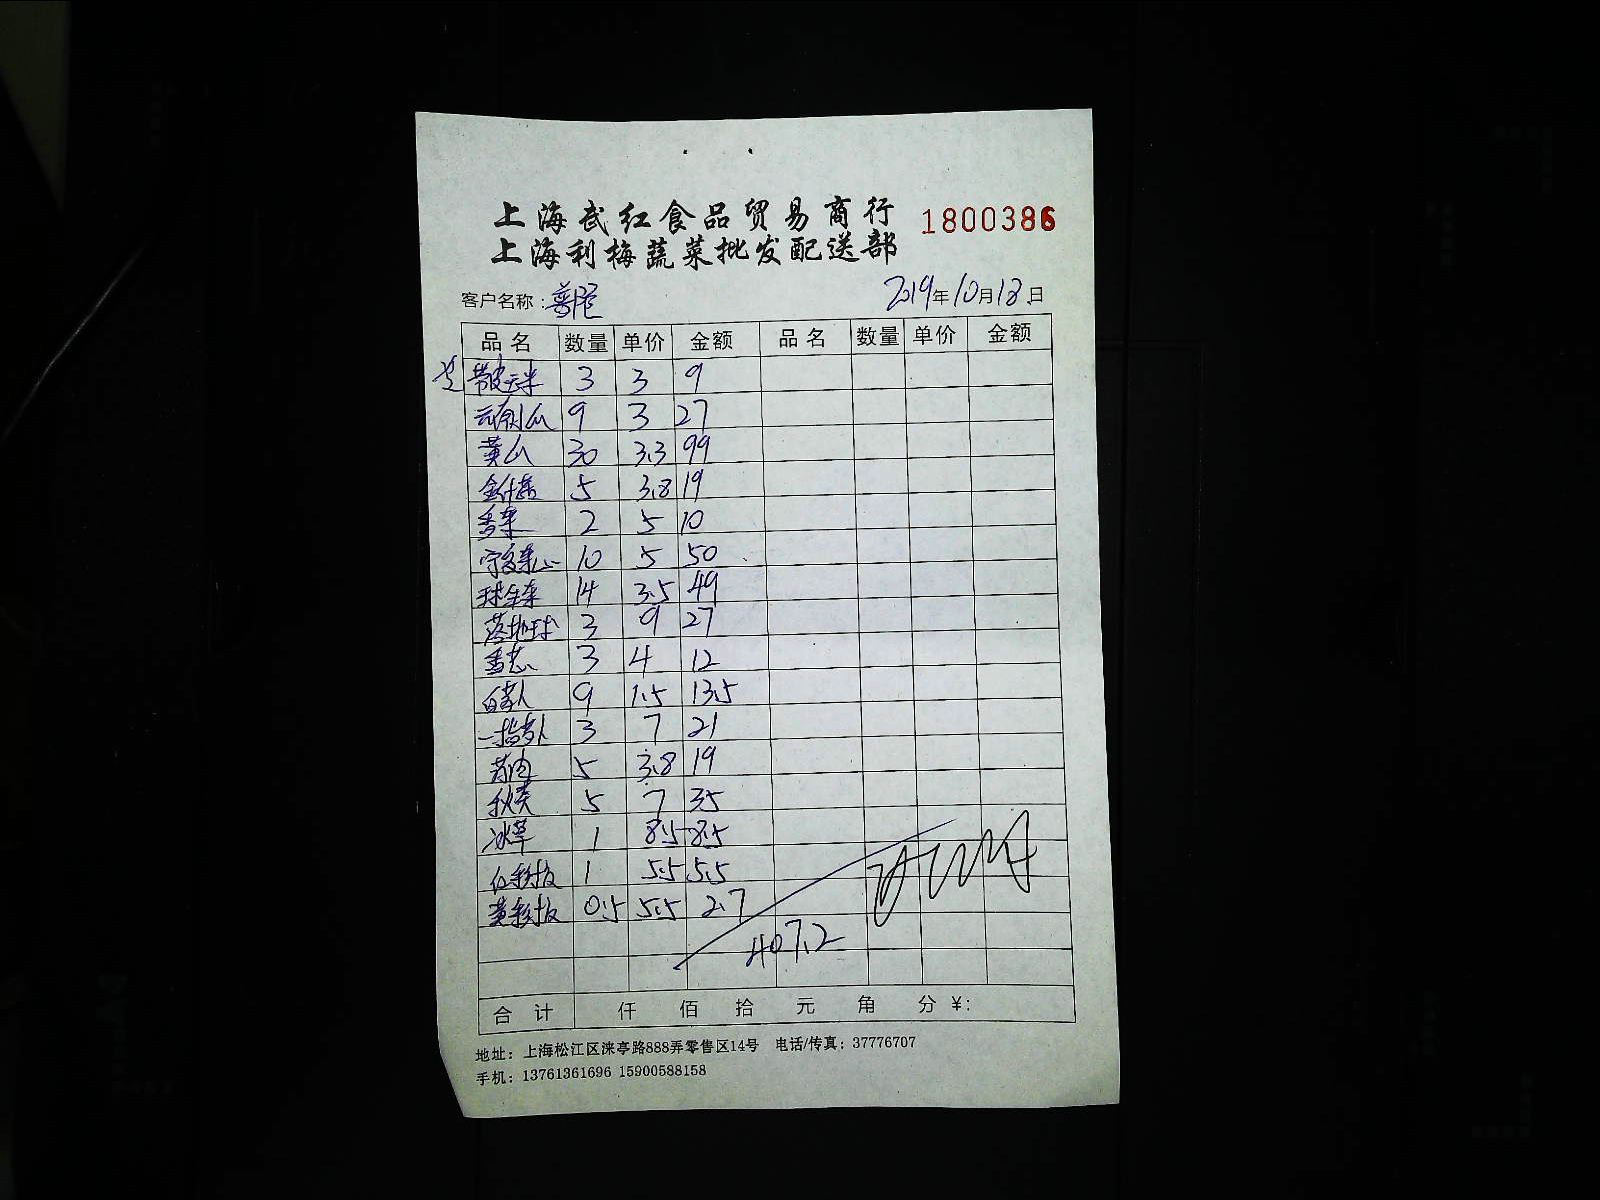 上海武红食品贸易商行 1800386
上海利梅蔬菜批发配送部
客户名称: 2019年10月18日
品名 数量 单价 金额 品名 数量 单价 金额
3 3 9
9 3 27
黄瓜 30 3.3 99
5 3.8 19
香菜 2 5 10
宁夏菜心 10 5 50
球生菜 14 3.5 49
落地球 3 9 27
香葱 3 4 12
白萝卜 9 1.5 13.5
3 7 21
5 3.8 19
秋葵 5 7 35
冰草 1 8.5 8.5
红彩椒 1 5.5 5.5
黄彩椒 0.5 5.5 2.7
407.2
合计 仟 佰 拾 元 角 分 ¥:
地址: 上海松江区涞亭路888弄零售区14号 电话/传真: 37776707
手机: 13761361696 15900588158